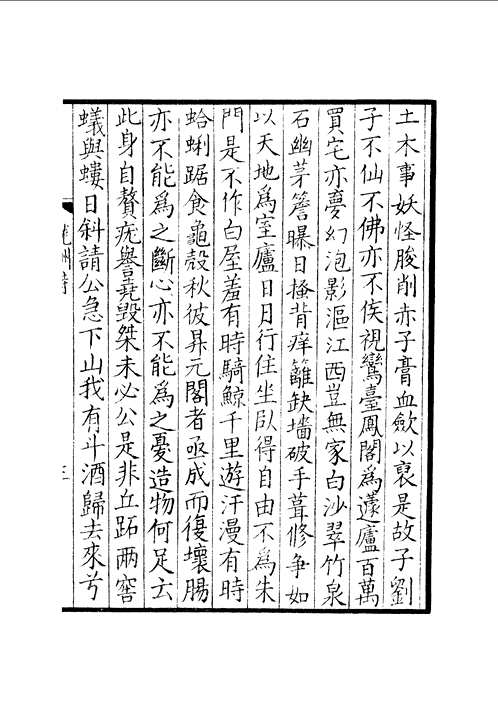 土木事妖怪朘削赤子膏血歛以裒是故子劉
子不仙不佛亦不矦視鸞臺鳳閣為蘧廬百萬
買宅亦夢幻泡影漚江西豈無家白沙翠竹泉
石幽茅簷曝日搔背痒籬缺墻破手葺修争如
以天地為室廬日月行住坐臥得自由不為朱
門是不作白屋羞有時騎鯨千里遊汗漫有時
蛤蜊踞食龜殼秋彼昇元閣者亟成而復壞腸
亦不能為之斷心亦不能為之憂造物何足云
此身自贅疣譽堯毀桀未必公是非丘跖兩窖
蟻與螻日斜請公急下山我有斗酒歸去來兮
龍洲詩
三